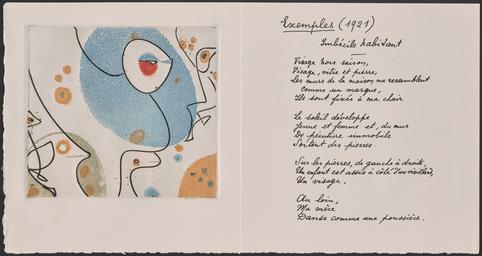 Exemples (1921)
Imbécile habitant
Visage hors saison,
Visage, vitre et pierre,
Les murs de la maison me ressemblent
comme un masque,
Ils sont fixés à ma chair
Le soleil développe
Jeune et femme et, du mur
De peinture immobile
Sortent des pierres.
Sur les pierres, de gauche à droite,
Un enfant est assis à côté d'un vieillard,
Un visage.
Au loin,
Ma mère
Danse comme une poussière.